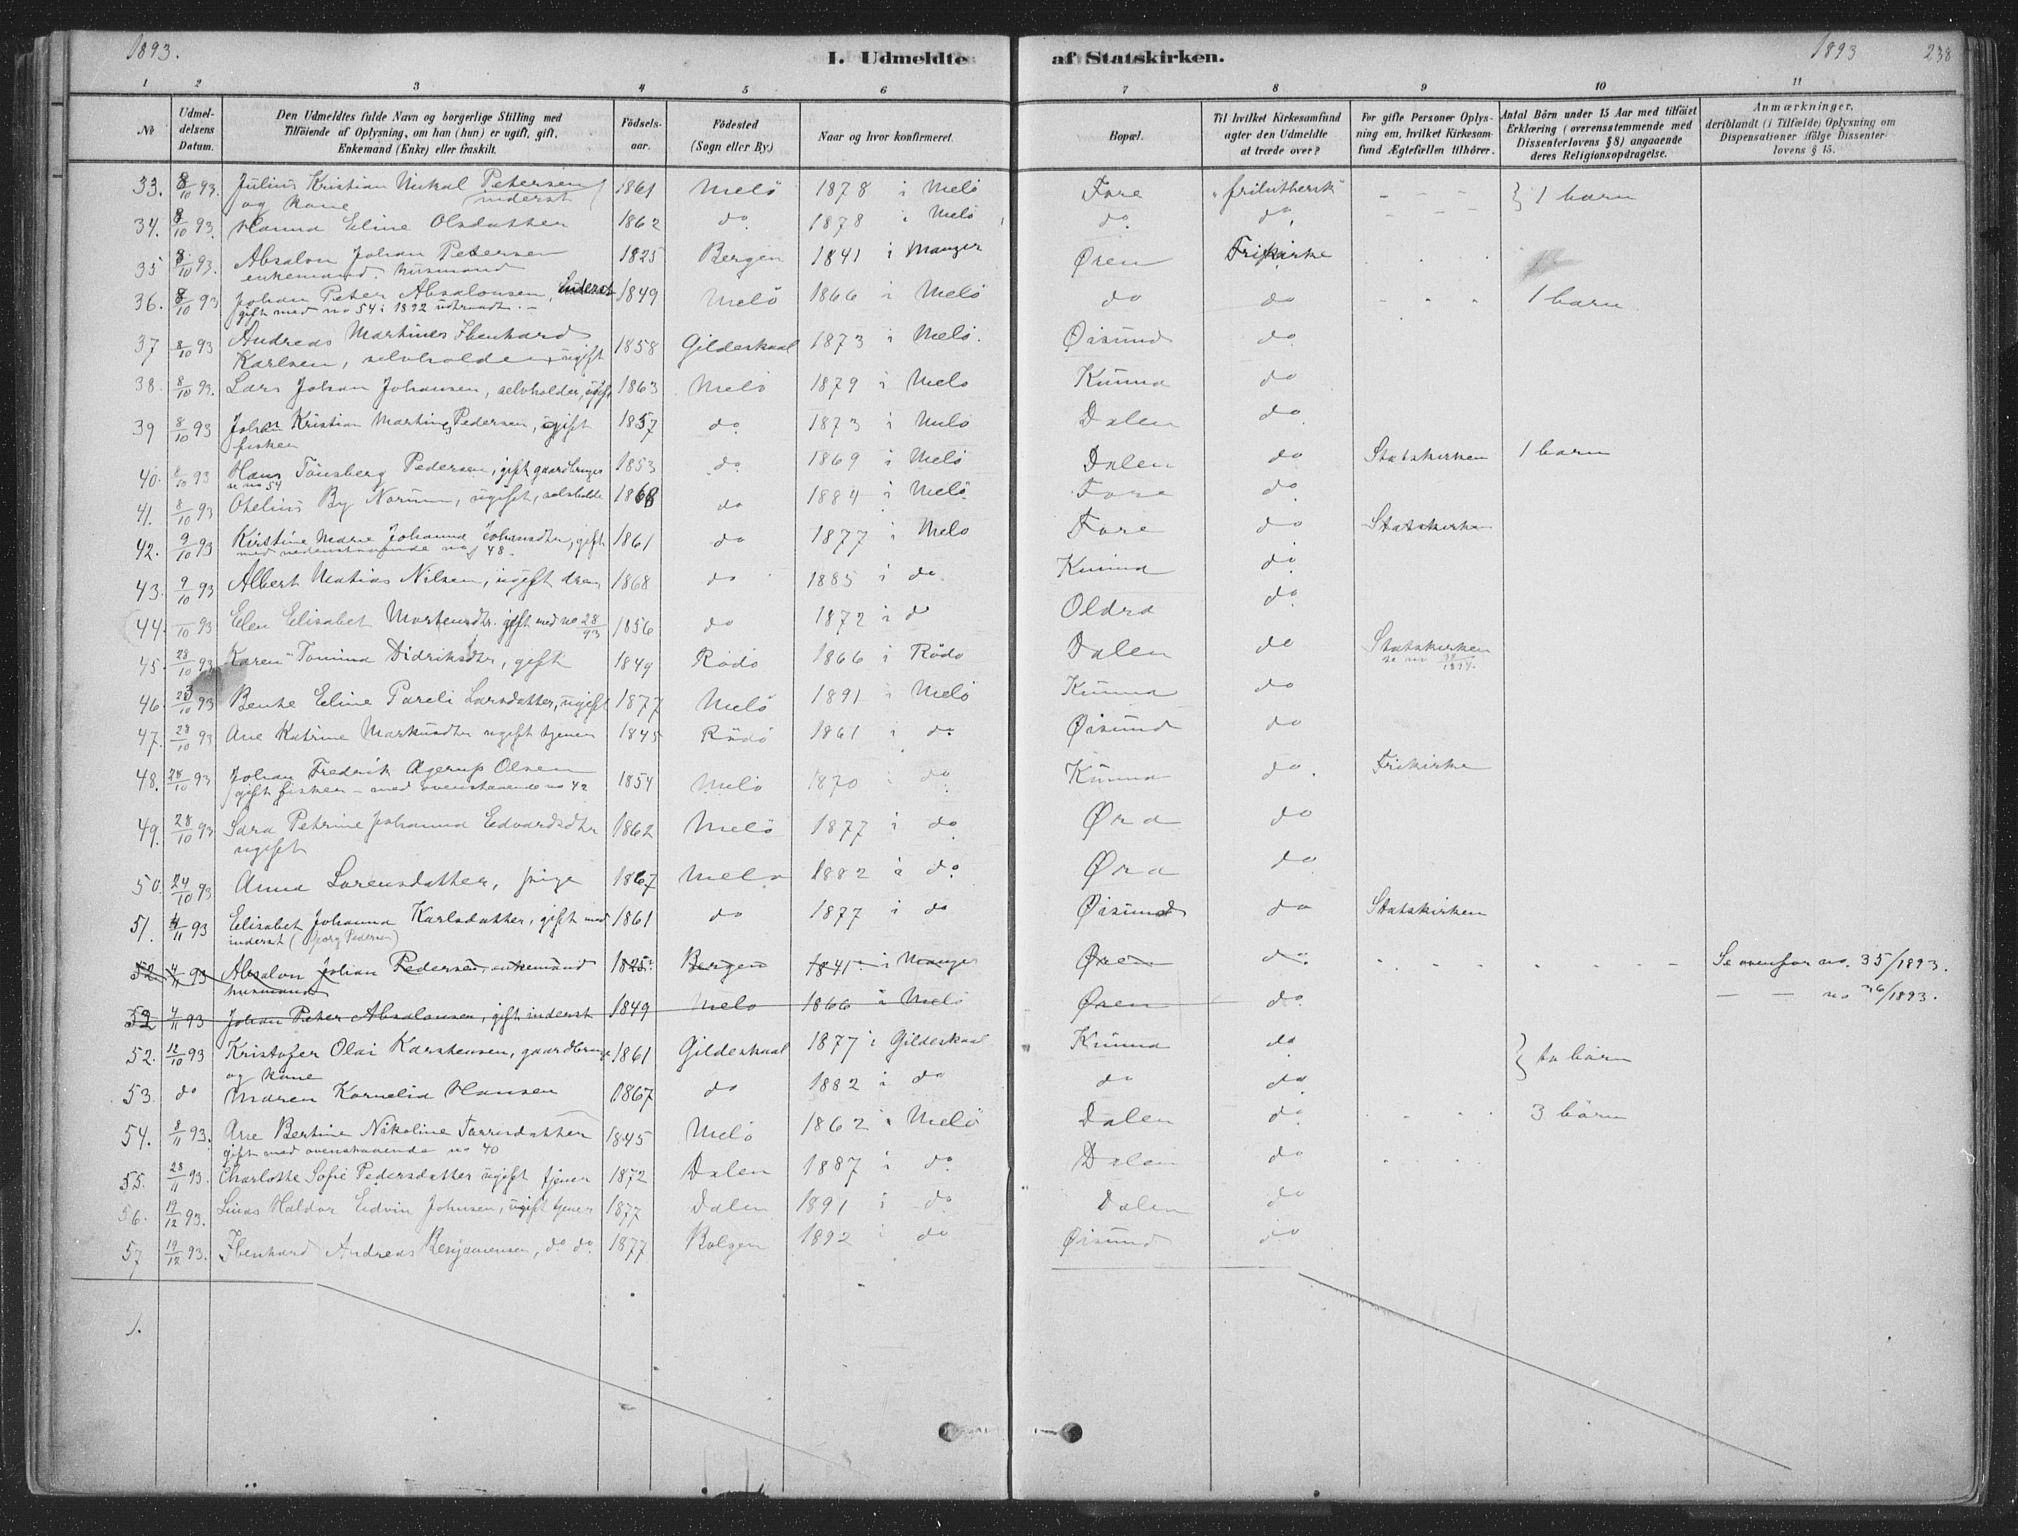 1893.
I. Udmeldte af Statskirken.
1893
238
1 2 3 4 5 6 7 8 9 10 11
No
Udmeldelsens Datum.
Den Udmeldtes fulde Navn og borgerlige Stilling med
Tilføiende af Oplysning, om han (hun) er ugift, gift,
Enkemand (Enke) eller fraskilt.
Fødselsaar.
Fødested (Sogn eller By.)
Naar og hvor konfirmeret.
Bopæl.
Til hvilket Kirkesamfund agter den Udmeldte at træde over?
For gifte Personer Oplysning om, hvilket Kirkesamfund Ægtefællen tilhører.
Antal Börn under 15 Aar med tilföiet Erklæring (overensstemmende med Dissenterlovens § 8) angaaende deres Religionsopdragelse.
Anmærkninger, deriblandt (i Tilfælde) Oplysning om Dispensationer ifølge Dissenterlovens § 15.
33. 8/10 93. Julius Kristian Nikal Petersen inderst 1861 Melö 1878 i Melö Fore friluthersk - - - } 1 barn
og Kone
34. 8/10 93. Hanna Eline Olsdatter 1862 do 1878 i Melö do do. - - -
35 8/10 93. Absalon Johan Petersen 1825 Bergen 1841 i Manger Øren Frikirke
enkemand. husmand
36. 8/10 93 Johan Peter Absalonsen, inderst 1849 Melö 1866 i Melö do do - - - 1 barn
gift med no 54 i 1892 udtraadt. -
37 8/10 93 Andreas Martines Ibenhard
Karlsen, selvholder, ugift 1858 Gildeskaal 1873 i Melö. Øisund do
38. 8/10 93. Lars Johan Johansen, selvholder, ugift 1863 Melö 1879 i Melö Kunna do
39 8/10 93 Johan Kristian Martin Pedersen, ugift 1857 do. 1873 i Melö Dalen do.
fisker
40. 8/10 93 Hans Tönsberg Pedersen, gift gaardbruger 1853 do. 1869 i Melö Dalen do Statskirken 1 barn
se no 54
41. 8/10 93 Otelius By Norum, ugift, selvholder 1868 do 1884 i Melö Fore do
42. 9/10 93 Kirstine Marie Johanna Johansdtr, gift 1861 do 1877 i Melö Fore do Statskirken
med nedenstaaende no 48.
43. 9/10 93 Albert Matias Nilsen, ugift dreng 1868 do 1883 i do. Kunna do
44. /10 93 Elen Elisabet Mortensdtr. gift med no 28/93 1856 do 1872 i do Oldra do.
45. 28/10 93 Karen Tomina Didriksdtr, gift 1849 Rödö 1866 i Rödö Dalen do Statskirken
se no 38/1894.
46. 23/10 93 Bente Eline Pareli Larsdatter, ugift 1877 Melö 1891 i Melö Kunna do
47. 28/10 93 Ane Katrine Markusdtr ugift tjener 1845 Rödö 1861 i do. Øisund do
48. 28/10 93 Johan Fredrik Agerup Olsen 1854 Melö 1870 do Kunna do. Frikirke
gift fisker - med ovenstaaende no 42
49. 28/10 93 Sara Petrine Johanna Edvardsdtr 1862 Melö 1877 i do. Øra do
ugift
50. 24/10 93 Anna Lorensdatter, pige 1867 Melö 1882 i do. Øra do
51. 4/11 93 Elisabet Johanna Karlsdatter, gift med 1861 do 1877 i do Øisund do Statskirken
inderst (Georg Pedersen)
52 4/11 93 Absalon Johan Pedersen, enkemand 1825 Bergen 1841 i Manger Øren do. Se ovenfor no. 35/1893.
husmand
52 4/11 93 Johan Peter Absalonsen, gift inderst 1849 Melö 1866 i Melö Øren do. — — no 36/1893.
52. 12/10 93 Kristofer Olai Karstensen, gaardbruger 1861 Gildeskaal 1877 i Gildeskaal Kunna do } to börn
og Kone
53. do Maren Kornelia Hansen 1867 do 1882 i do do do
54. 8/11 93. Ane Bertine Nikoline Tarrisdatter 1845 Melö 1862 i Melö Dalen do. 3 börn
gift med ovenstaaende no 40
55. 28/11 93. Charlotte Sofie Pedersdatter ugift tjener 1872 Dalen 1887 i do. Dalen do
56. 19/12 93. Linus Haldor Edvin Johnsen, ugift tjener 1877 Dalen 1891 i do Dalen do
57 19/12 93. Ibenhard Andreas Benjaminsen, do. do. 1877 Bolgen 1892 i do Øisund do
1.